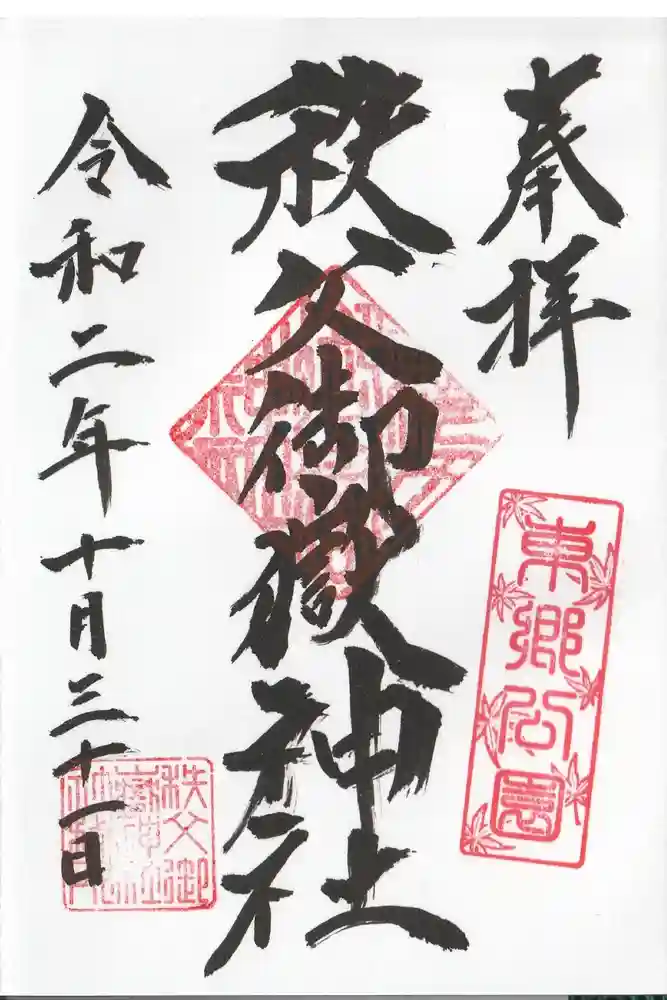 奉拝
東郷公園
秩父御嶽神社
令和二年十月三十一日
秩父御